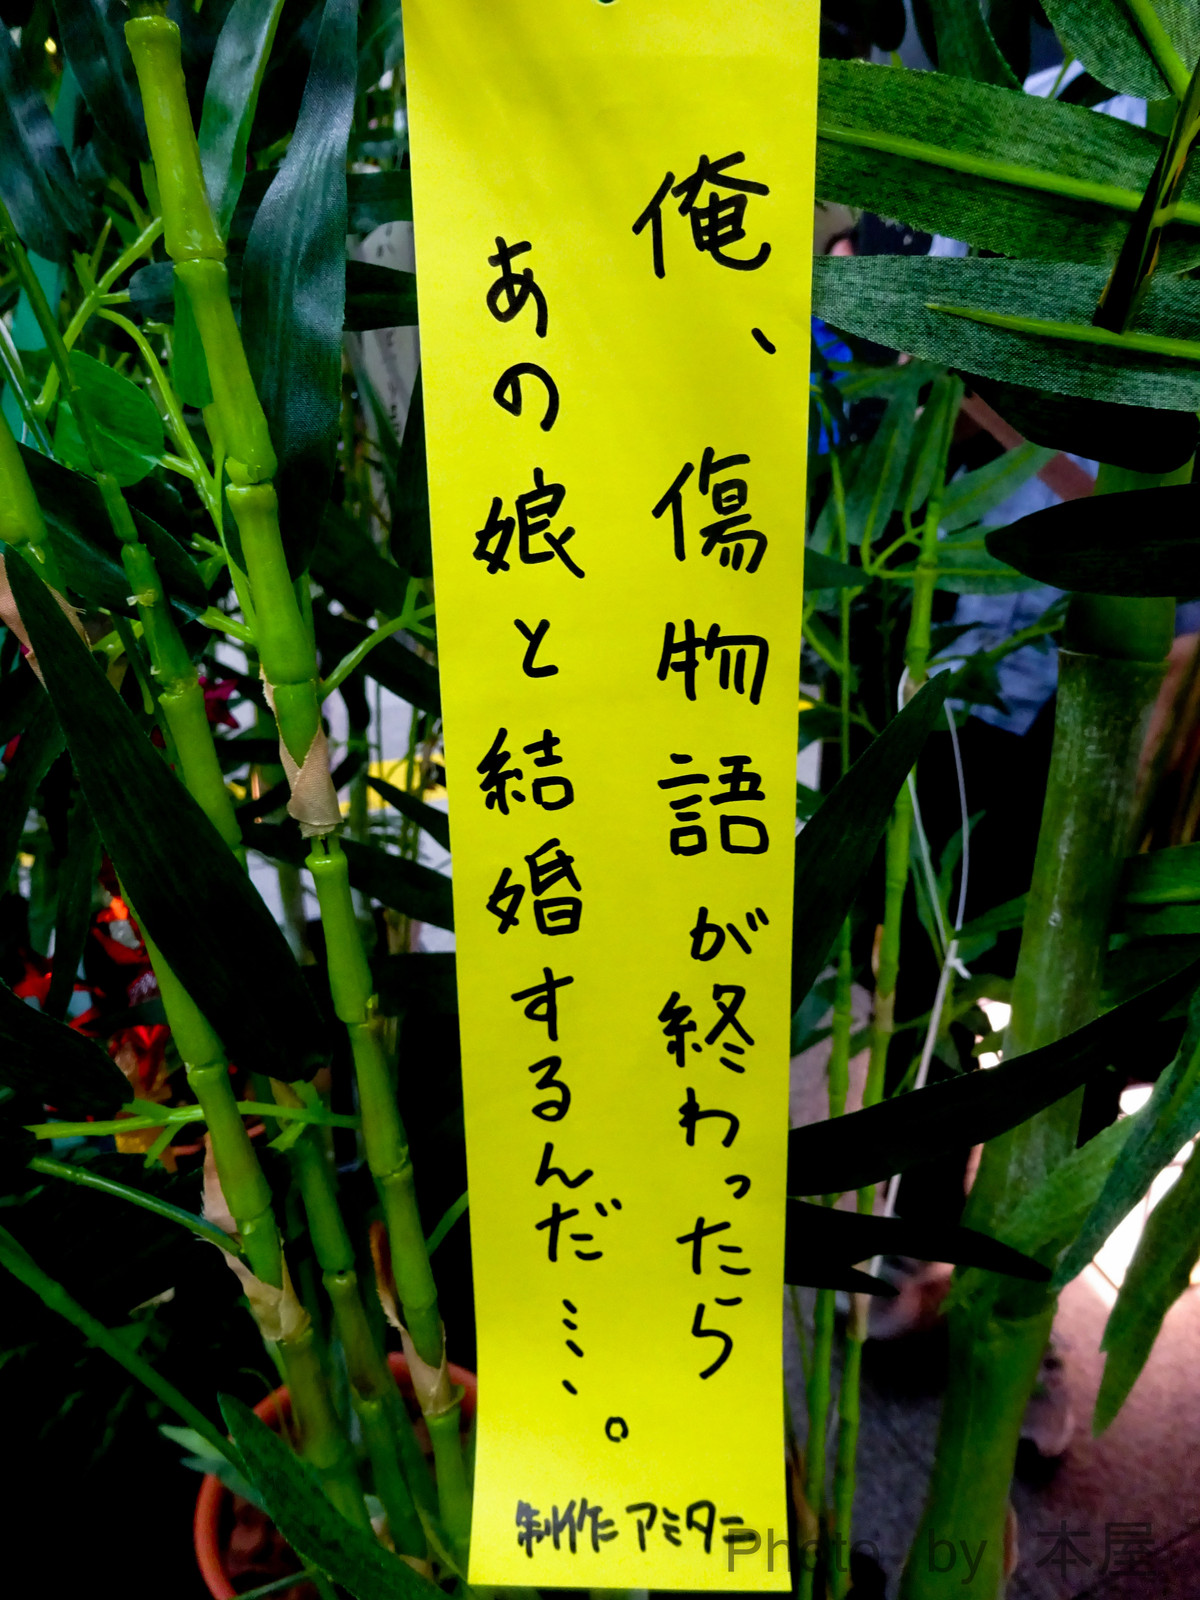 俺、傷物語が終わったら
あの娘と結婚するんだ……。
制作 アミタニ
Photo by 本屋